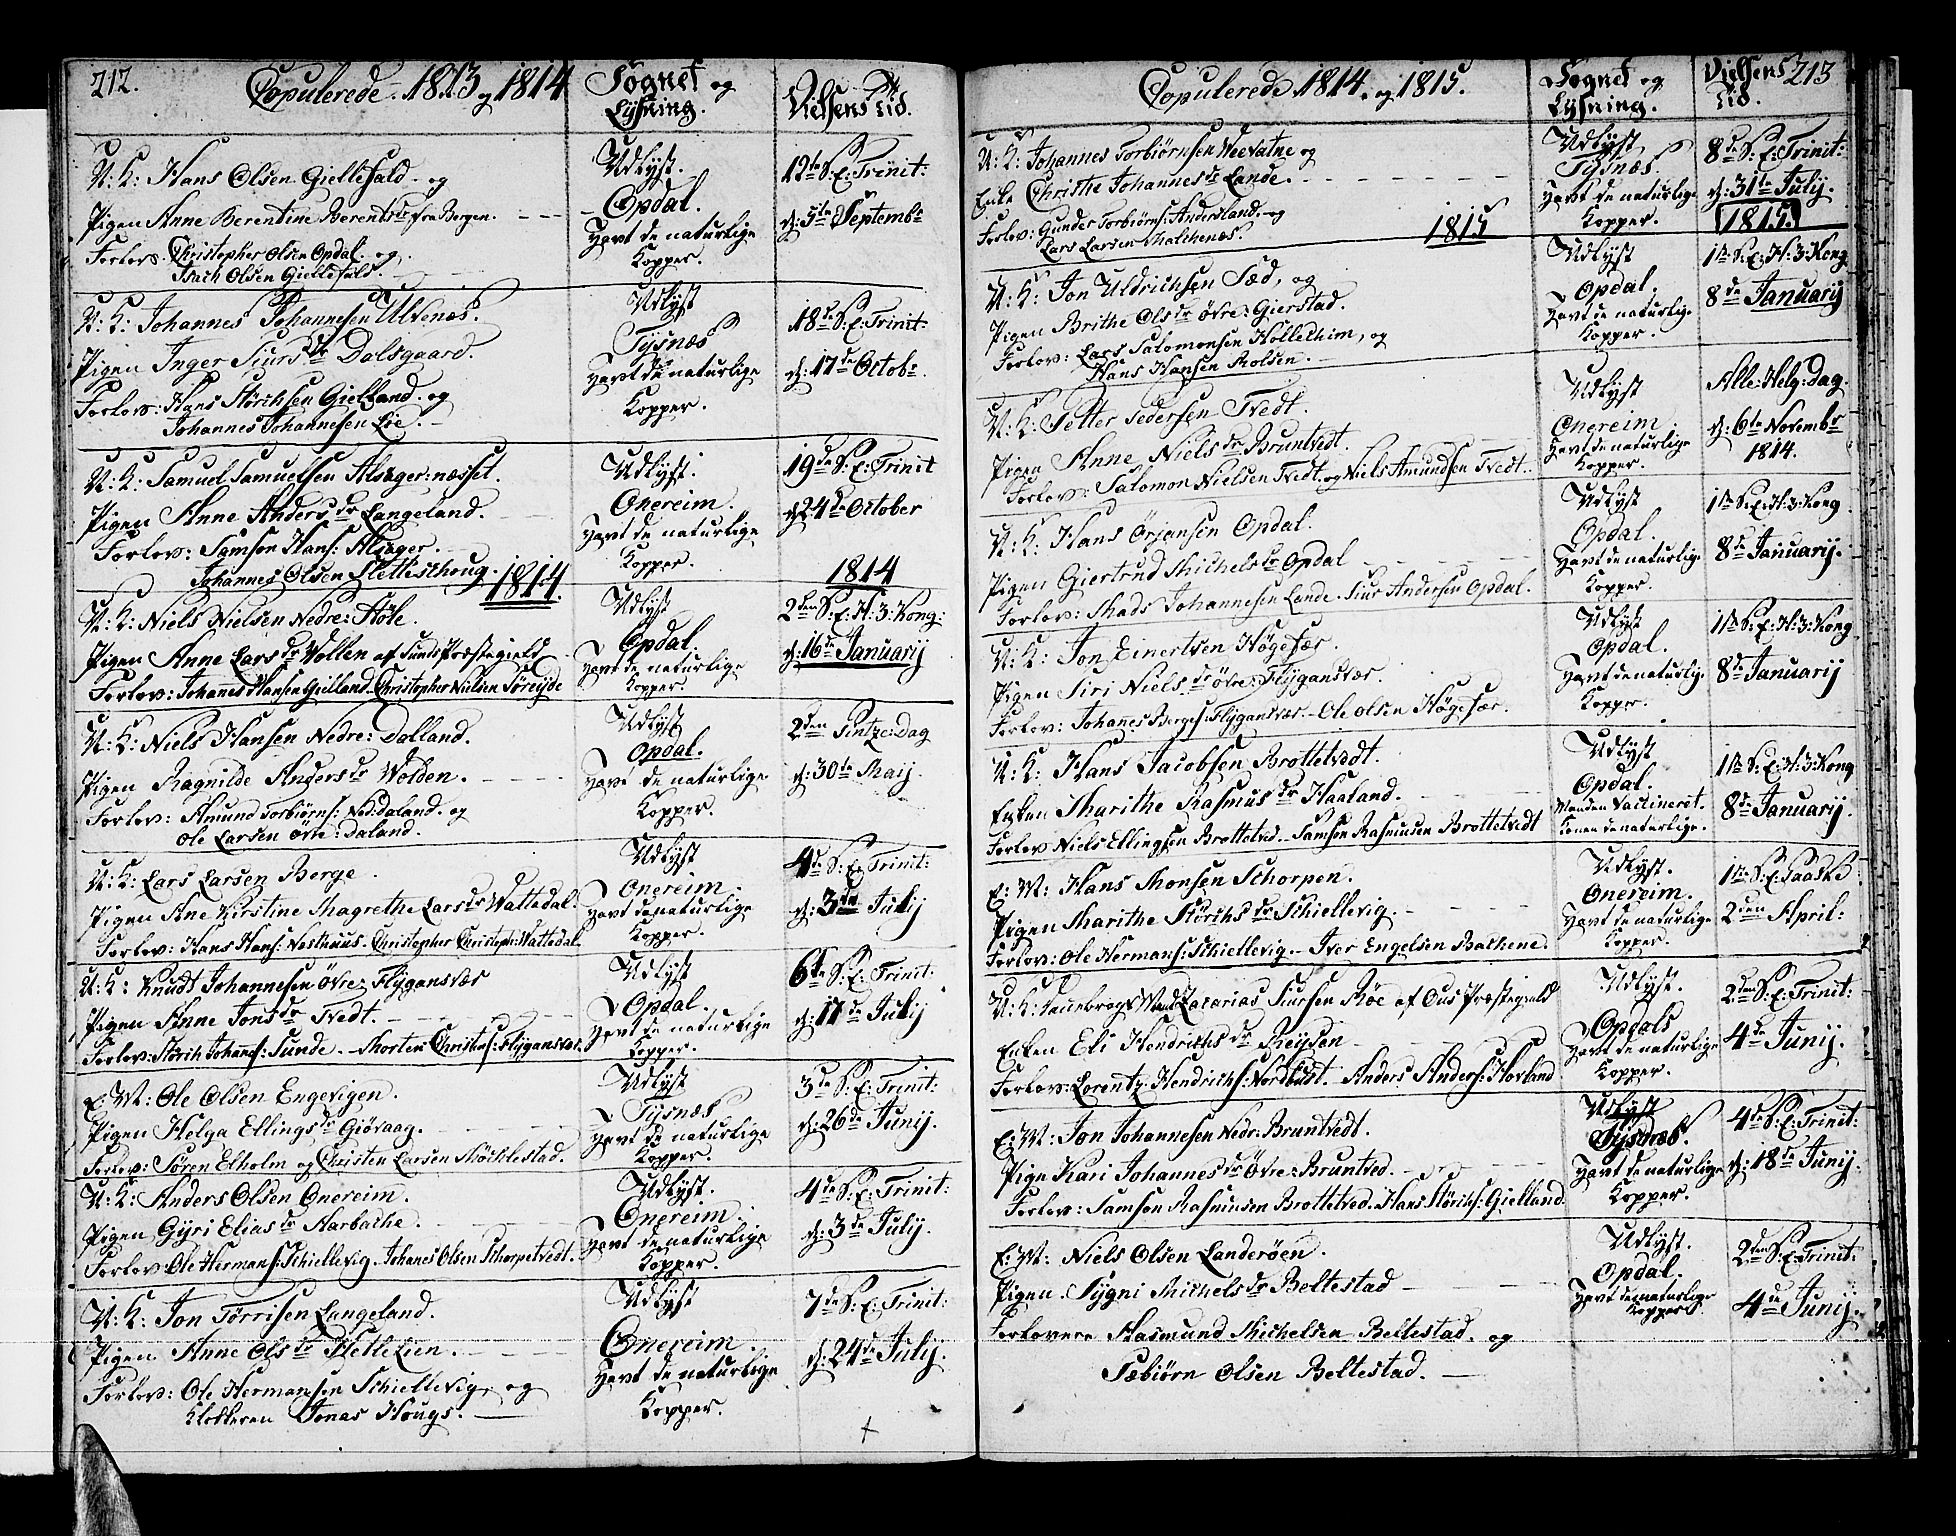 212.
Copulerede 1813 og 1814
Sognet og
Lysning.
Vielsens Tid.
U: K: Hans Olsen Giellefald og
Pigen Anne Berentine Berents dr fra Bergen.
Forlov: Christopher Olsen Opdal og
Isach Olsen Giellefald.
Udlyst
Opdal.
Havt de naturlige
Kopper.
12te S: E: Trinit:
d: 5te Septembr
U: K: Johannes Johannesen Ulvenæs.
Pigen Inger Siurs dr Dalsgaard.
Forlov: Hans Störchsen Gielland og
Johannes Johannesen Lie.
Udlyst
Tysnæs
Havt de naturlige
Kopper.
18de S: E: Trinit:
d: 17de Octobr.
U: K: Samuel Samuelsen Alsager:næsset.
Pigen Anne Anders dr Langeland.
Forlov: Samson Hans: Alsager.
Johannes Olsen Flettesthoug.
Udlyst
Onereim.
Havt de naturlige
Kopper.
19de S: E: Trinit
d 24de October
1814.
1814
U: K: Niels Nielsen Nedre: Hole.
Pigen Anne Lars dr Vollen af Sunds Præstegield
Forlov: Johannes Hansen Gielland. Christopher Nielsen Söreijde
Udlyst
Opdal.
Havt de naturlige
Kopper.
2den S: E: H: 3: Kong:
d: 16de Januarij
U: K: Niels Hansen Nedre: Dalland.
Pigen Ragnilde Anders dr Wolden.
Forlov: Amund Torbiörns: Ned: Daland. og
Ole Larsen övre: Daland.
Udlyst
Opdal.
Havt de naturlige
Kopper.
2den Pintze: Dag
d: 30te Maij.
U: K: Lars Larsen Berge.
Pigen Ane Kirstine Magrethe Lars dr Wattedal.
Forlov: Hans Hans: Vesthuus. Christopher Christoph: Wattedal.
Udlyst
Onereim.
Havt de naturlige
Kopper.
4de S: E: Trinit:
d: 3de Julij
U: K: Knudt Johannesen övre: Flygansvær
Pigen Anne Jons dr Tvedt.
Forlov: Störch Johans: Sunde. Morten Christens: Flygansvær.
Udlyst
Opdal.
Havt de naturlige
Kopper.
6te S: E: Trinit:
d: 17de Julij
E: M: Ole Olsen Engevigen.
Pigen Helga Ellings dr Giövaag.
Forlov: Sören Elholm og Christen Larsen Möchlestad.
Udlyst
Tysnæs
Havt de naturlige
Kopper.
3de S: E: Trinit:
d: 26de Junij.
U: K: Anders Olsen Onereim.
Pigen Gyri Elias dr Aarbache.
Forlov: Ole Hermans: Schiellevig. Johanes Olsen Schorpetvedt.
Udlyst.
Onereim.
Havt de naturlige
Kopper.
4de S: E: Trinit:
d: 3de Julij.
U: K: Jon Törrisen Langeland.
Pigen Anne Ols dr Hellelien.
Forlov: Ole Hermansen Schiellevig, og
Klokkeren Jonas Hougs.
Udlyst
Onereim.
Havt de naturlige
Kopper.
7de S: E: Trinit:
d: 24de Julij.
Copulerede 1814. og 1815.
Sognet og
Lysning.
Vielsens
Tid.
213
U: K: Johannes Torbiörnsen Weevatne og
Enke Christhe Johannes dr Lande.
Forlov: Gunder Torbiörns: Andersland og
Lars Larsen Malchenæs.
Udlyst
Tysnæs.
Havt de naturlige
Kopper.
8de S: E: Trinit:
d: 31te Julij.
1815
1815.
U: K: Jon Uldrichsen Sæd, og
Pigen Brithe Ols dr övre: Gierstad.
Forlov: Lars Salomonsen Hollechim, og
Hans Hansen Rolsen.
Udlyst
Opdal.
Havt de naturlig.
Kopper.
1ste S: E: H: 3: Kong
8de Januarij
U: K: Petter Pedersen Tvedt.
Pigen Anne Niels dr Bruntvedt.
Forlov: Salomon Nielsen Tvedt. og Niels Amundsen Tvedt.
Udlyst
Onereim
Havt de naturlige
Kopper.
Alle: Helg: Dag.
d: 6te Novembr
1814.
U: K: Hans Örjansen Opdal.
Pigen Giertrud Michels dr Opdal
Forlov: Mads Johannesen Lande. Siur Andersen Opdal.
Udlyst
Opdal.
Havt de naturlig.
Kopper.
1ste S: E: H: 3: Kong.
8de Januarij.
U: K: Jon Einertsen Högesær.
Pigen Siri Niels dr övre: Flygansvær.
Forlov: Johanes Berges: Flygansvær. Ole Olsen Högesær.
Udlyst
Opdal.
Havt de naturlig.
Kopper.
1ste S: E: H: 3: Kong
8de Januarij
U: K: Hans Jacobsen Brottetvedt.
Enken Marithe Rasmus dr Haaland.
Forlov Niels Ellingsen Brottetved. Samson Rasmusen Brottetvedt
Udlyst
Opdal.
Manden Vaccineret.
Konen de naturlige.
1ste S: E: H: 3: Kong
8de Januarij.
E: M: Hans Monsen Schorpen.
Pigen Marithe Störchs dr Schiellevig.
Forlov: Ole Hermans: Schiellevig. Iver Engelsen Bachene.
Udlyst.
Onereim.
Havt de naturlige
Kopper.
1ste S: E: Paaske
2den April:
U: K: Dannebrogs Mand Zacarias Siursen Böe af Ous Præstegield
Enken Eli Hendrichs dr Reijsen
Forlov: Lorentz Hendrichs: Nordhust. Anders Anders: Hovland
Udlyst.
Opdals
Havt de naturlige
Kopper.
2den S: E: Trinit:
4de Junij.
E: M: Jon Johannesen Nedr: Bruntvedt.
Pige Kari Johannes dr Övre: Bruntved.
Forlov: Samson Rasmusen Brottetved. Hans Störchs: Gielland.
Udlyst
Tysnæs.
Havt de naturlige
Kopper.
4de S: E: Trinit:
d: 18de Junij.
E: M: Niels Olsen Landeröen.
Pigen Sygni Michels dr Beltestad
Forlovere Aasmund Michelsen Beltestad. og
Sæbiörn Olsen Beltestad.
Udlyst.
Opdal.
Havt de naturlige
Kopper.
2den S: E: Trinit:
4de Junij.